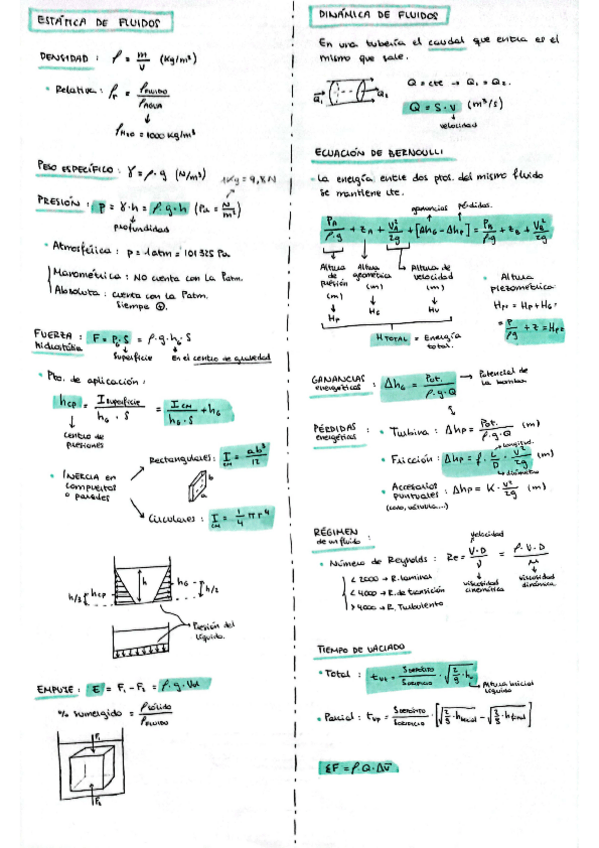 ESTÁTICA DE FLUIDOS
DENSIDAD : ρ = m/V (Kg/m³)
• Relativa : ρr = ρFLUIDO/ρAGUA
ρH2O = 1000 Kg/m³
PESO ESPECÍFICO : γ = ρ·g (N/m³)
1Kg = 9,8N
PRESIÓN : p = γ·h = ρ·g·h (Pa = N/m²)
profundidad
• Atmosférica : p = 1atm = 101325 Pa
Manométrica : NO cuenta con la Patm.
Absoluta : cuenta con la Patm.
Siempre ⊕.
FUERZA hidrostática : F = PG·S = ρ·g·hG·S
Superficie
en el centro de gravedad
• Pto. de aplicación :
hCP = I superficie/hG·S = ICM/hG·S + hG
centro de presiones
• INERCIA en compuertas o paredes
Rectangulares : ICM = ab³/12
Circulares : ICM = 1/4 π r⁴
h/3 hCP h hG h/2
Presión del líquido.
EMPUJE : E = F1 - F2 = ρ·g·Vol
% sumergido = ρSÓLIDO/ρFLUIDO
F1
F2
DINÁMICA DE FLUIDOS
En una tubería el caudal que entra es el
mismo que sale.
Q1 Q2
Q = cte → Q1 = Q2.
Q = S·V (m³/s)
velocidad
ECUACIÓN DE BERNOULLI
• La energía entre dos ptos. del mismo fluido
se mantiene cte.
ganancias pérdidas.
PA/ρ·g + ZA + VA²/2g + [ΔhG - ΔhP] = PB/ρ·g + ZB + VB²/2g
Altura de presión (m) HP
Altura geométrica (m) HG
Altura de velocidad (m) HV
HTOTAL = Energía total.
• Altura piezométrica
HPZ = HP + HG
= P/ρg + Z = HPZ
GANANCIAS energéticas : ΔhG = Pot./ρ·g·Q
Potencial de la bomba
PÉRDIDAS energéticas :
• Turbina : ΔhP = Pot./ρ·g·Q (m)
• Fricción : ΔhP = f · L/D · V²/2g (m)
longitud.
diámetro
• Accesorios puntuales : ΔhP = K · V²/2g (m)
(codo, válvula...)
RÉGIMEN de un fluido :
velocidad
• Número de Reynolds : Re = V·D/ν = ρ·V·D/μ
viscosidad cinemática
viscosidad dinámica
< 2000 → R. laminar
< 4000 → R. de transición
> 4000 → R. Turbulento
TIEMPO DE VACIADO
• Total : tVT = SDEPÓSITO/SORIFICIO · √(2/g · h0)
Altura inicial líquido
• Parcial : tVP = SDEPÓSITO/SORIFICIO · [√(2/g · hinicial) - √(2/g · hfinal)]
ΣF = ρ·Q·Δv.